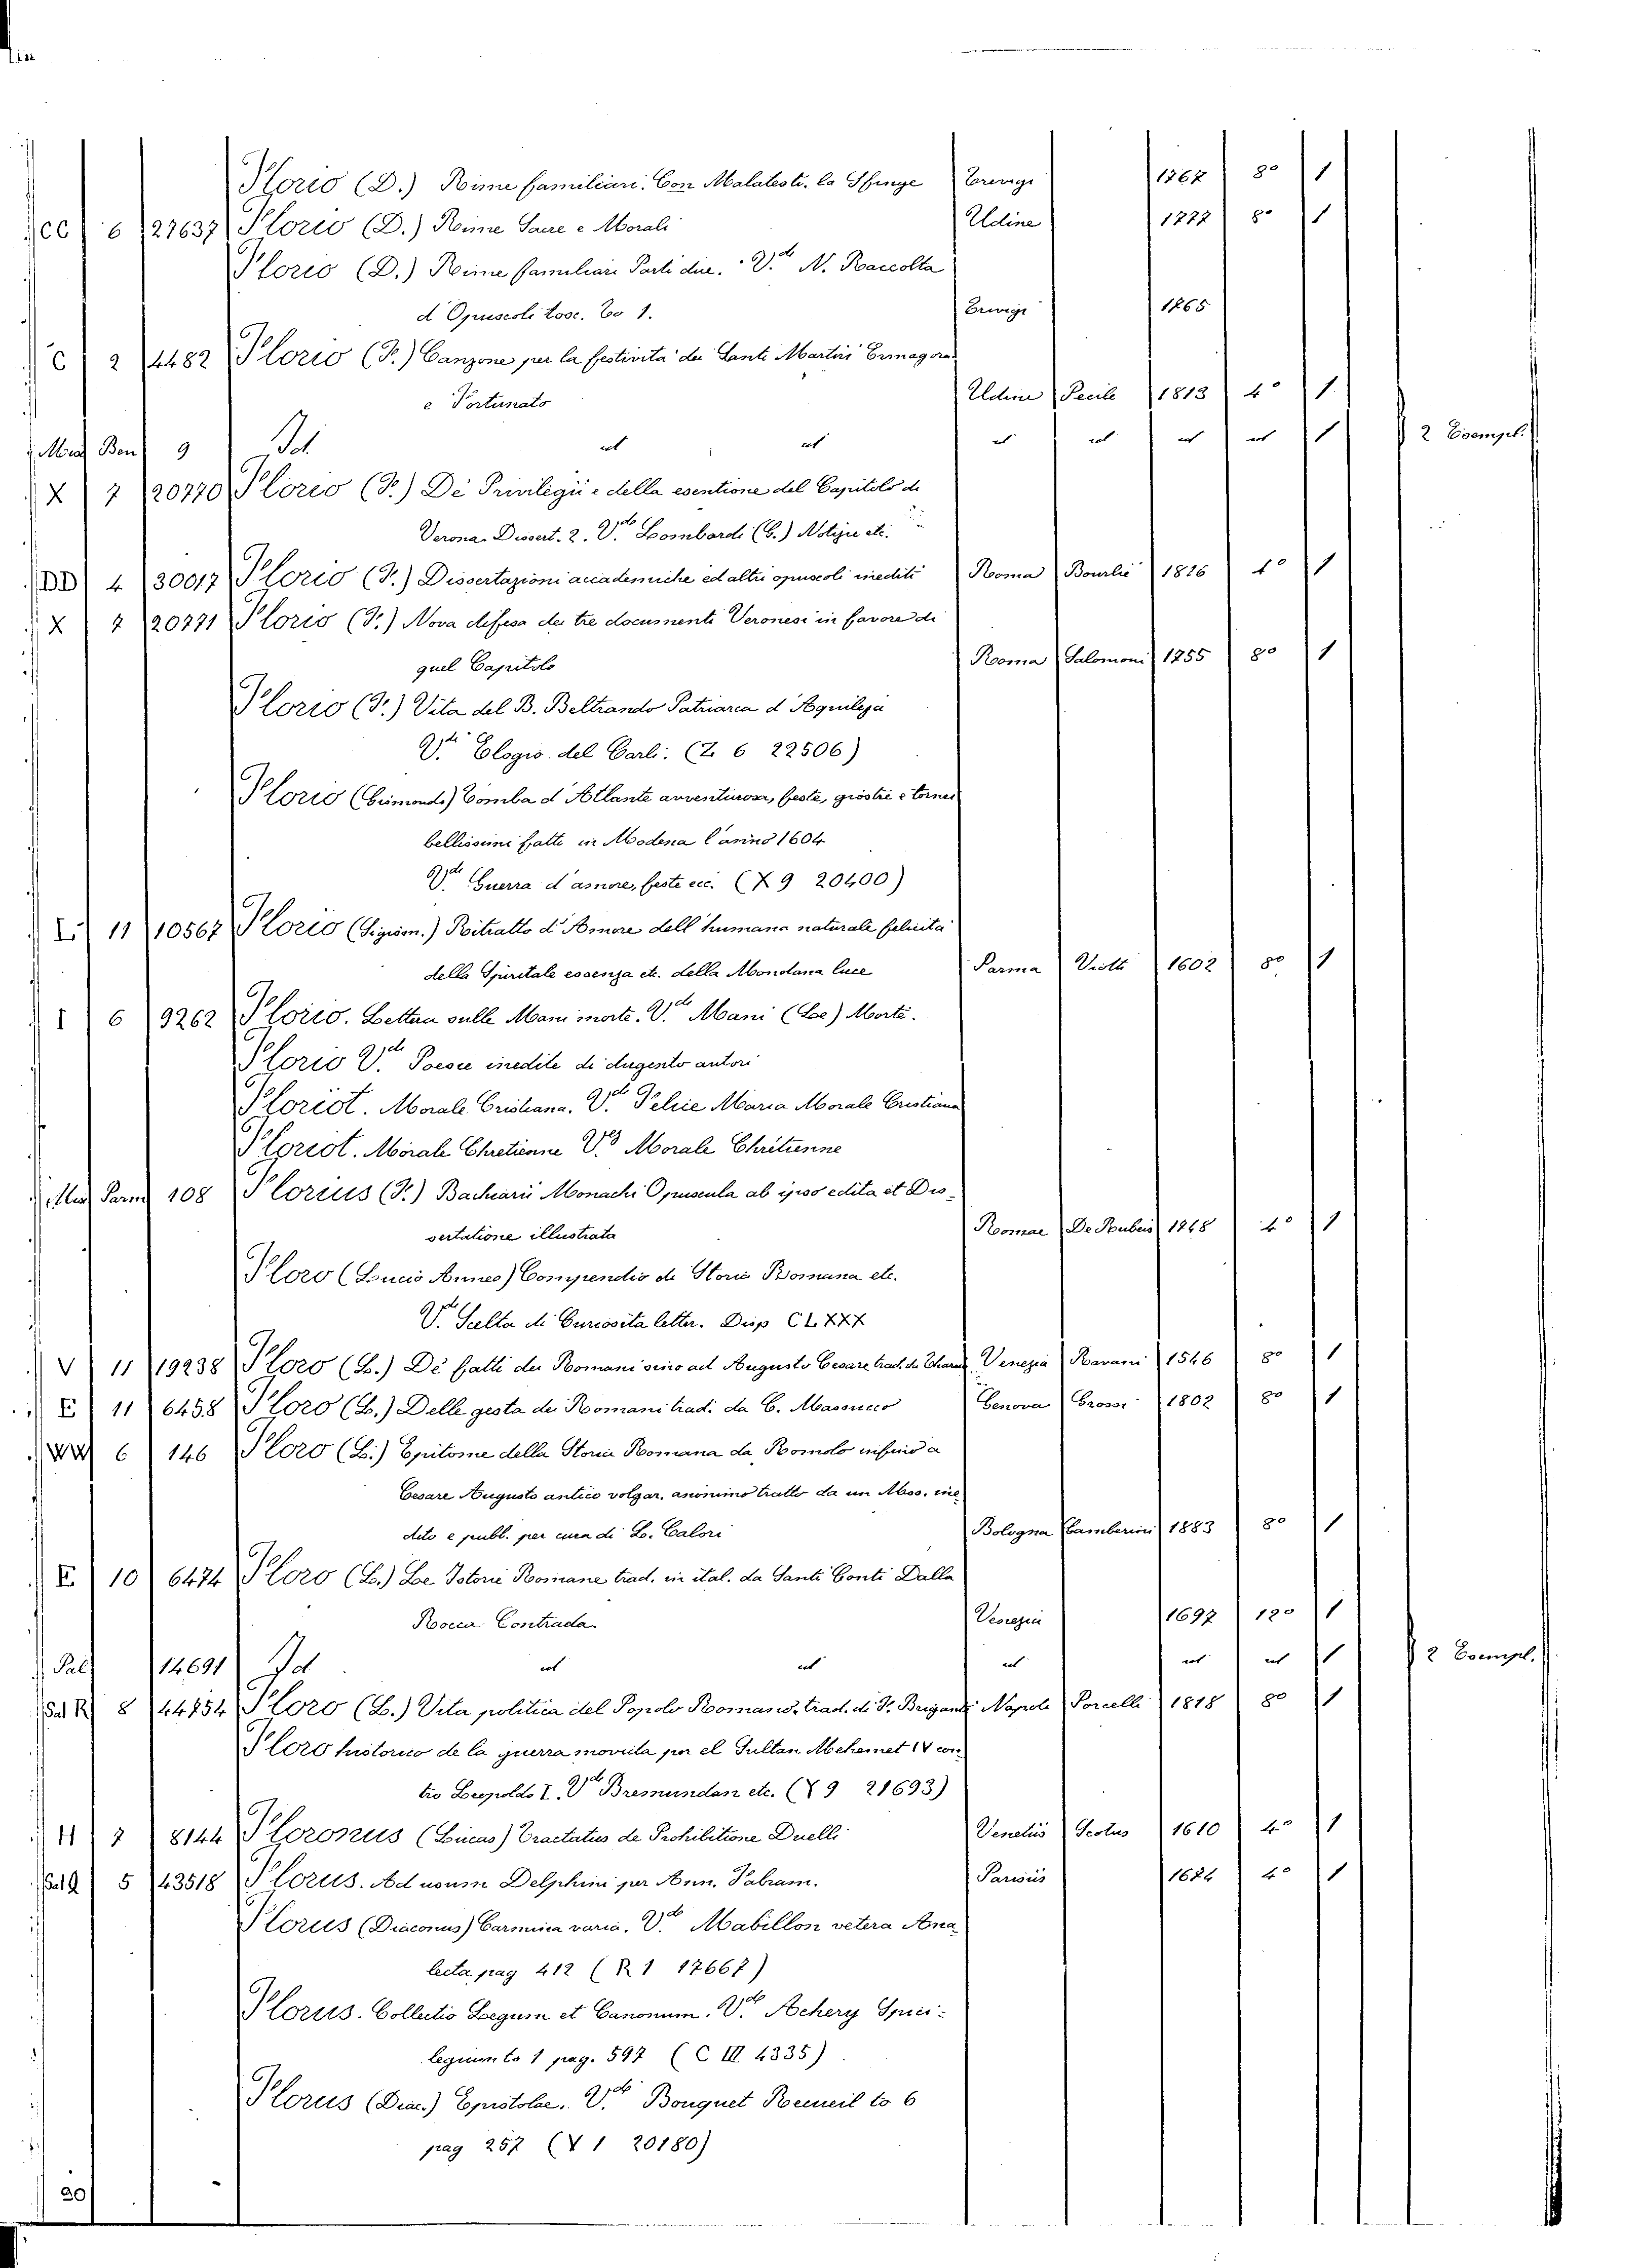 Florio (D.) Rime familiari. Con Malatesti. la Sfinge Trevigi 1767 8º 1
CC 6 27637 Florio (D.) Rime Sacre e Morali Udine 1777 8º 1
Florio (D.) Rime familiari Parti due. Vdi N. Raccolta
d'Opuscoli tosc. to 1. Trevigi 1765
C 2 4482 Florio (F.) Canzone per la festività dei Santi Martiri Ermagora
e Fortunato Udine Pecile 1813 4º 1
Misc Ben 9 Id ut ut ut ut ut ut 1 2 Esempl.
X 7 20770 Florio (F.) De' Privilegii e della esentione del Capitolo di
Verona. Dissert. 2. Vdi Lombardi (G.) Notizie etc.
DD 4 30017 Florio (F.) Dissertazioni accademiche ed altri opuscoli inediti Roma Bourlié 1816 4º 1
X 7 20771 Florio (F.) Nova difesa dei tre documenti Veronesi in favore di
quel Capitolo Roma Salomoni 1755 8º 1
Florio (F.) Vita del B. Beltrando Patriarca d'Aquileja
Vdi Elogio del Carli. (Z 6 22506)
Florio (Gismondo) Tomba d'Atlante avventurosa, feste, giostre e tornei
bellissimi fatti in Modena l'anno 1604
Vdi Guerra d'amore, feste ecc. (X 9 20400)
L 11 10567 Florio (Sigism.) Ritratto d'Amore dell'humana naturale felicita
della Spiritale essenza et. della Mondana luce Parma Viotti 1602 8º 1
I 6 9262 Florio. Lettera sulle Mani morte. Vdi Mani (Le) Morte.
Florio Vdi Poesie inedite di dugento autori
Floriot. Morale Cristiana. Vdi Felice Maria Morale Cristiana
Floriot. Morale Chretienne Vdi Morale Chrétienne
Misc Parm 108 Florius (F.) Bachiarii Monachi Opuscula ab ipso edita et Dis-
sertatione illustrata Romae De Rubeis 1748 4º 1
Floro (Lucio Anneo) Compendio di Storia Romana etc.
Vdi Scelta di Curiosità letter. Disp CLXXX
V 11 19238 Floro (L.) De' fatti dei Romani sino ad Augusto Cesare trad. da Venezia Ravani 1546 8º 1
E 11 6458 Floro (L.) Delle gesta dei Romani trad. da C. Massucco Genova Grossi 1802 8º 1
WW 6 146 Floro (L.) Epitome della Storia Romana da Romolo infino a
Cesare Augusto antico volgar. anonimo tratto da un Mss. ine
dito e pubb. per cura di L. Calori Bologna Gamberini 1883 8º 1
E 10 6474 Floro (L.) Le Istorie Romane trad. in ital. da Santi Conti Dalla
Rocca Contrada. Venezia 1697 12º 1
Pal 14691 Id ut ut ut ut ut 1 2 Esempl.
Sal R 8 44754 Floro (L.) Vita politica del Popolo Romano, trad. di F. Briganti Napoli Porcelli 1818 8º 1
Floro historico de la guerra movida por el Sultan Mehemet IV con
tro Leopoldo I. Vdi Bremundan etc. (Y 9 21693)
H 7 8144 Floronus (Lucas) Tractatus de Prohibitione Duelli Venetiis Scotus 1610 4º 1
Sal Q 5 43518 Florus. Ad usum Delphini per Ann. Fabram. Parisiis 1674 4º 1
Florus (Diaconus) Carmina varia. Vdi Mabillon vetera Ana
lecta pag 412 (R 1 17667)
Florus. Collectio Legum et Canonum. Vdi Achery Spici-
legium to 1 pag. 597 (C III 4335)
Florus (Diac.) Epistolae. Vdi Bouquet Recueil to 6
pag 257 (Y 1 20180)
20